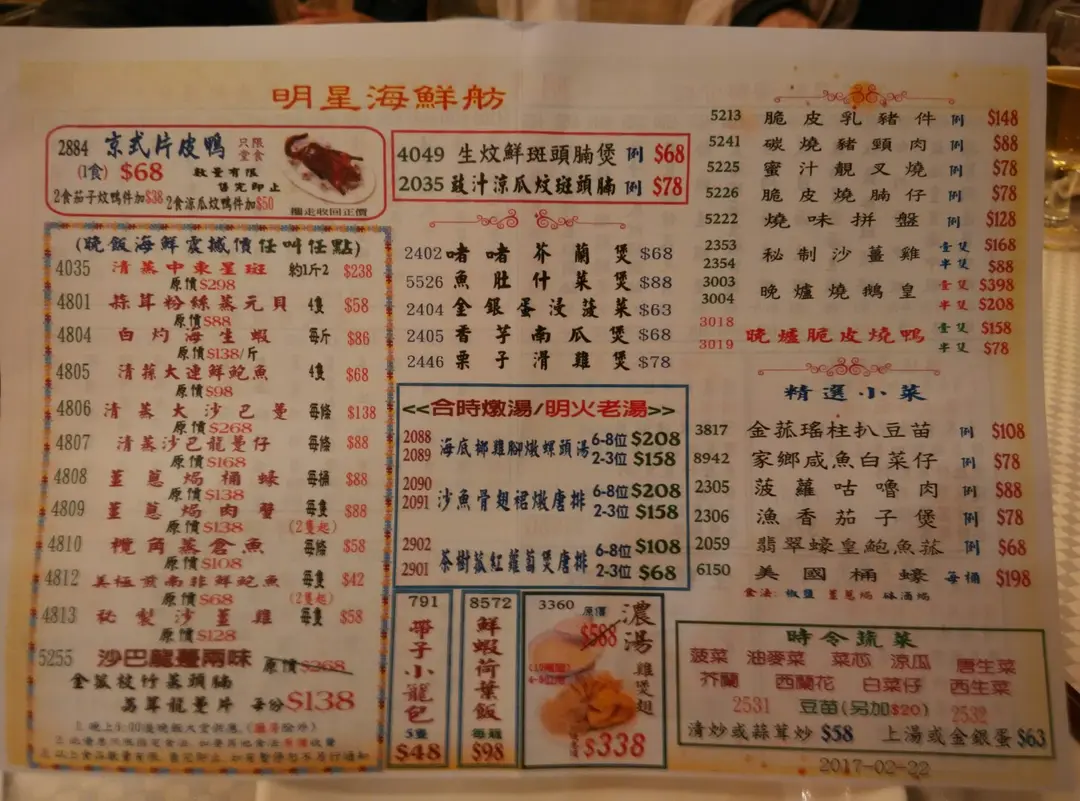 明星海鮮舫
2884 京式片皮鴨 只限堂食
(1食) $68 數量有限 售完即止
2食茄子炆鴨件加$38 2食涼瓜炆鴨件加$50
攞走收回正價
(晚飯海鮮震撼價任叫任點)
4035 清蒸中東星斑 約1斤2 $238
原價$298
4801 蒜茸粉絲蒸元貝 4隻 $58
原價$88
4804 白灼海生蝦 每斤 $86
原價$138/斤
4805 清蒸大連鮮鮑魚 4隻 $68
原價$98
4806 清蒸大沙巴躉 每條 $138
原價$268
4807 清蒸沙巴龍躉仔 每條 $88
原價$168
4808 薑蔥焗桶蠔 每桶 $88
原價$138
4809 薑蔥焗肉蟹 每隻 $88
原價$138 (2隻起)
4810 欖角蒸倉魚 每條 $58
原價$108
4812 美極煎南非鮮鮑魚 每隻 $42
原價$68 (2隻起)
4813 秘製沙薑雞 每隻 $58
原價$128
5255 沙巴龍躉兩味 原價$268
金菰枝竹蒸頭腩
萵筍龍躉片 每份$138
4049 生炆鮮斑頭腩煲 例 $68
2035 豉汁涼瓜炆斑頭腩 例 $78
2402 啫啫芥蘭煲 $68
5526 魚肚什菜煲 $88
2404 金銀蛋浸菠菜 $63
2405 香芋南瓜煲 $68
2446 栗子滑雞煲 $78
<<合時燉湯/明火老湯>>
2088 海底椰雞腳燉螺頭湯 6-8位 $208
2089 2-3位 $158
2090 沙魚骨翅裙燉唐排 6-8位 $208
2091 2-3位 $158
2902 茶樹菰紅蘿蔔煲唐排 6-8位 $108
2901 2-3位 $68
791
帶子小籠包
5隻
$48
8572
鮮蝦荷葉飯
每籠
$98
3360 原價 $588
濃湯雞煲翅
$338
5213 脆皮乳豬件 例 $148
5241 碳燒豬頸肉 例 $88
5225 蜜汁靚叉燒 例 $78
5226 脆皮燒腩仔 例 $78
5222 燒味拼盤 例 $128
2353 秘制沙薑雞 壹隻 $168
2354 半隻 $88
3003 晚爐燒鵝皇 壹隻 $398
3004 半隻 $208
3018 晚爐脆皮燒鴨 壹隻 $158
3019 半隻 $78
精選小菜
3817 金菰瑤柱扒豆苗 例 $108
8942 家鄉咸魚白菜仔 例 $78
2305 菠蘿咕嚕肉 例 $88
2306 漁香茄子煲 例 $78
2059 翡翠蠔皇鮑魚菰 例 $68
6150 美國桶蠔 每桶 $198
食法: 椒鹽 薑蔥焗 砵酒焗
時令蔬菜
菠菜 油麥菜 菜心 涼瓜 唐生菜
芥蘭 西蘭花 白菜仔 西生菜
2531 豆苗(另加$20) 2532
清炒或蒜茸炒 $58 上湯或金銀蛋 $63
2017-02-22